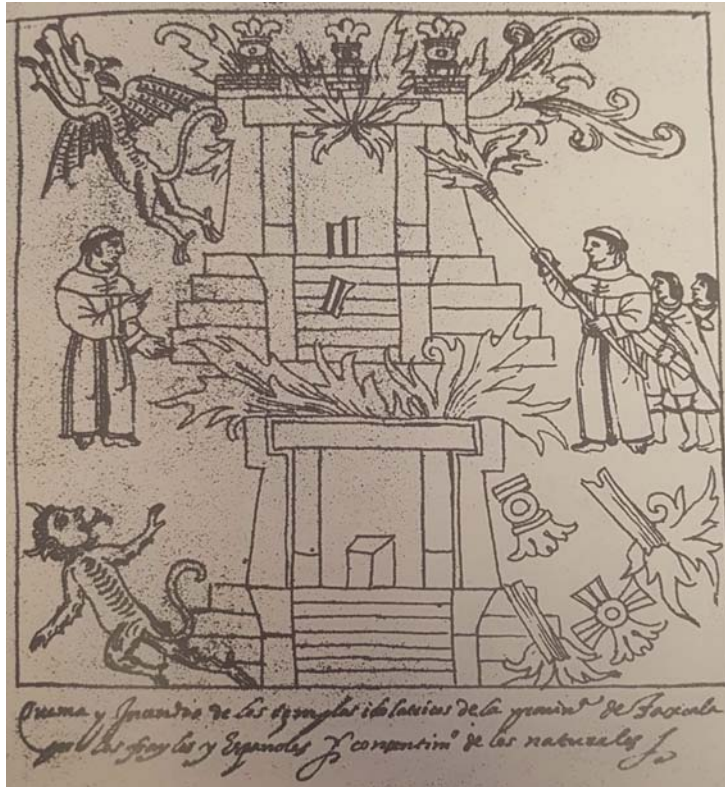 Quema y Incendio de los templos idolatricos de la provinª de Taxcala
por los frayles y Españoles y consentimº de los naturales